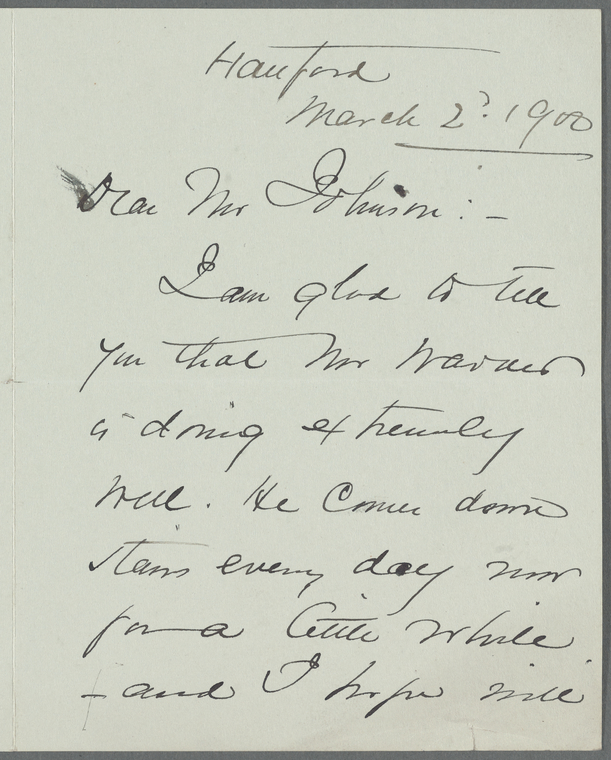 Hartford
March 2d. 1900
Dear Mr Johnson: –
I am glad to tell
you that Mr Warner
is doing extremely
well. He comes down
stairs every day now
for a little while
– and I hope will